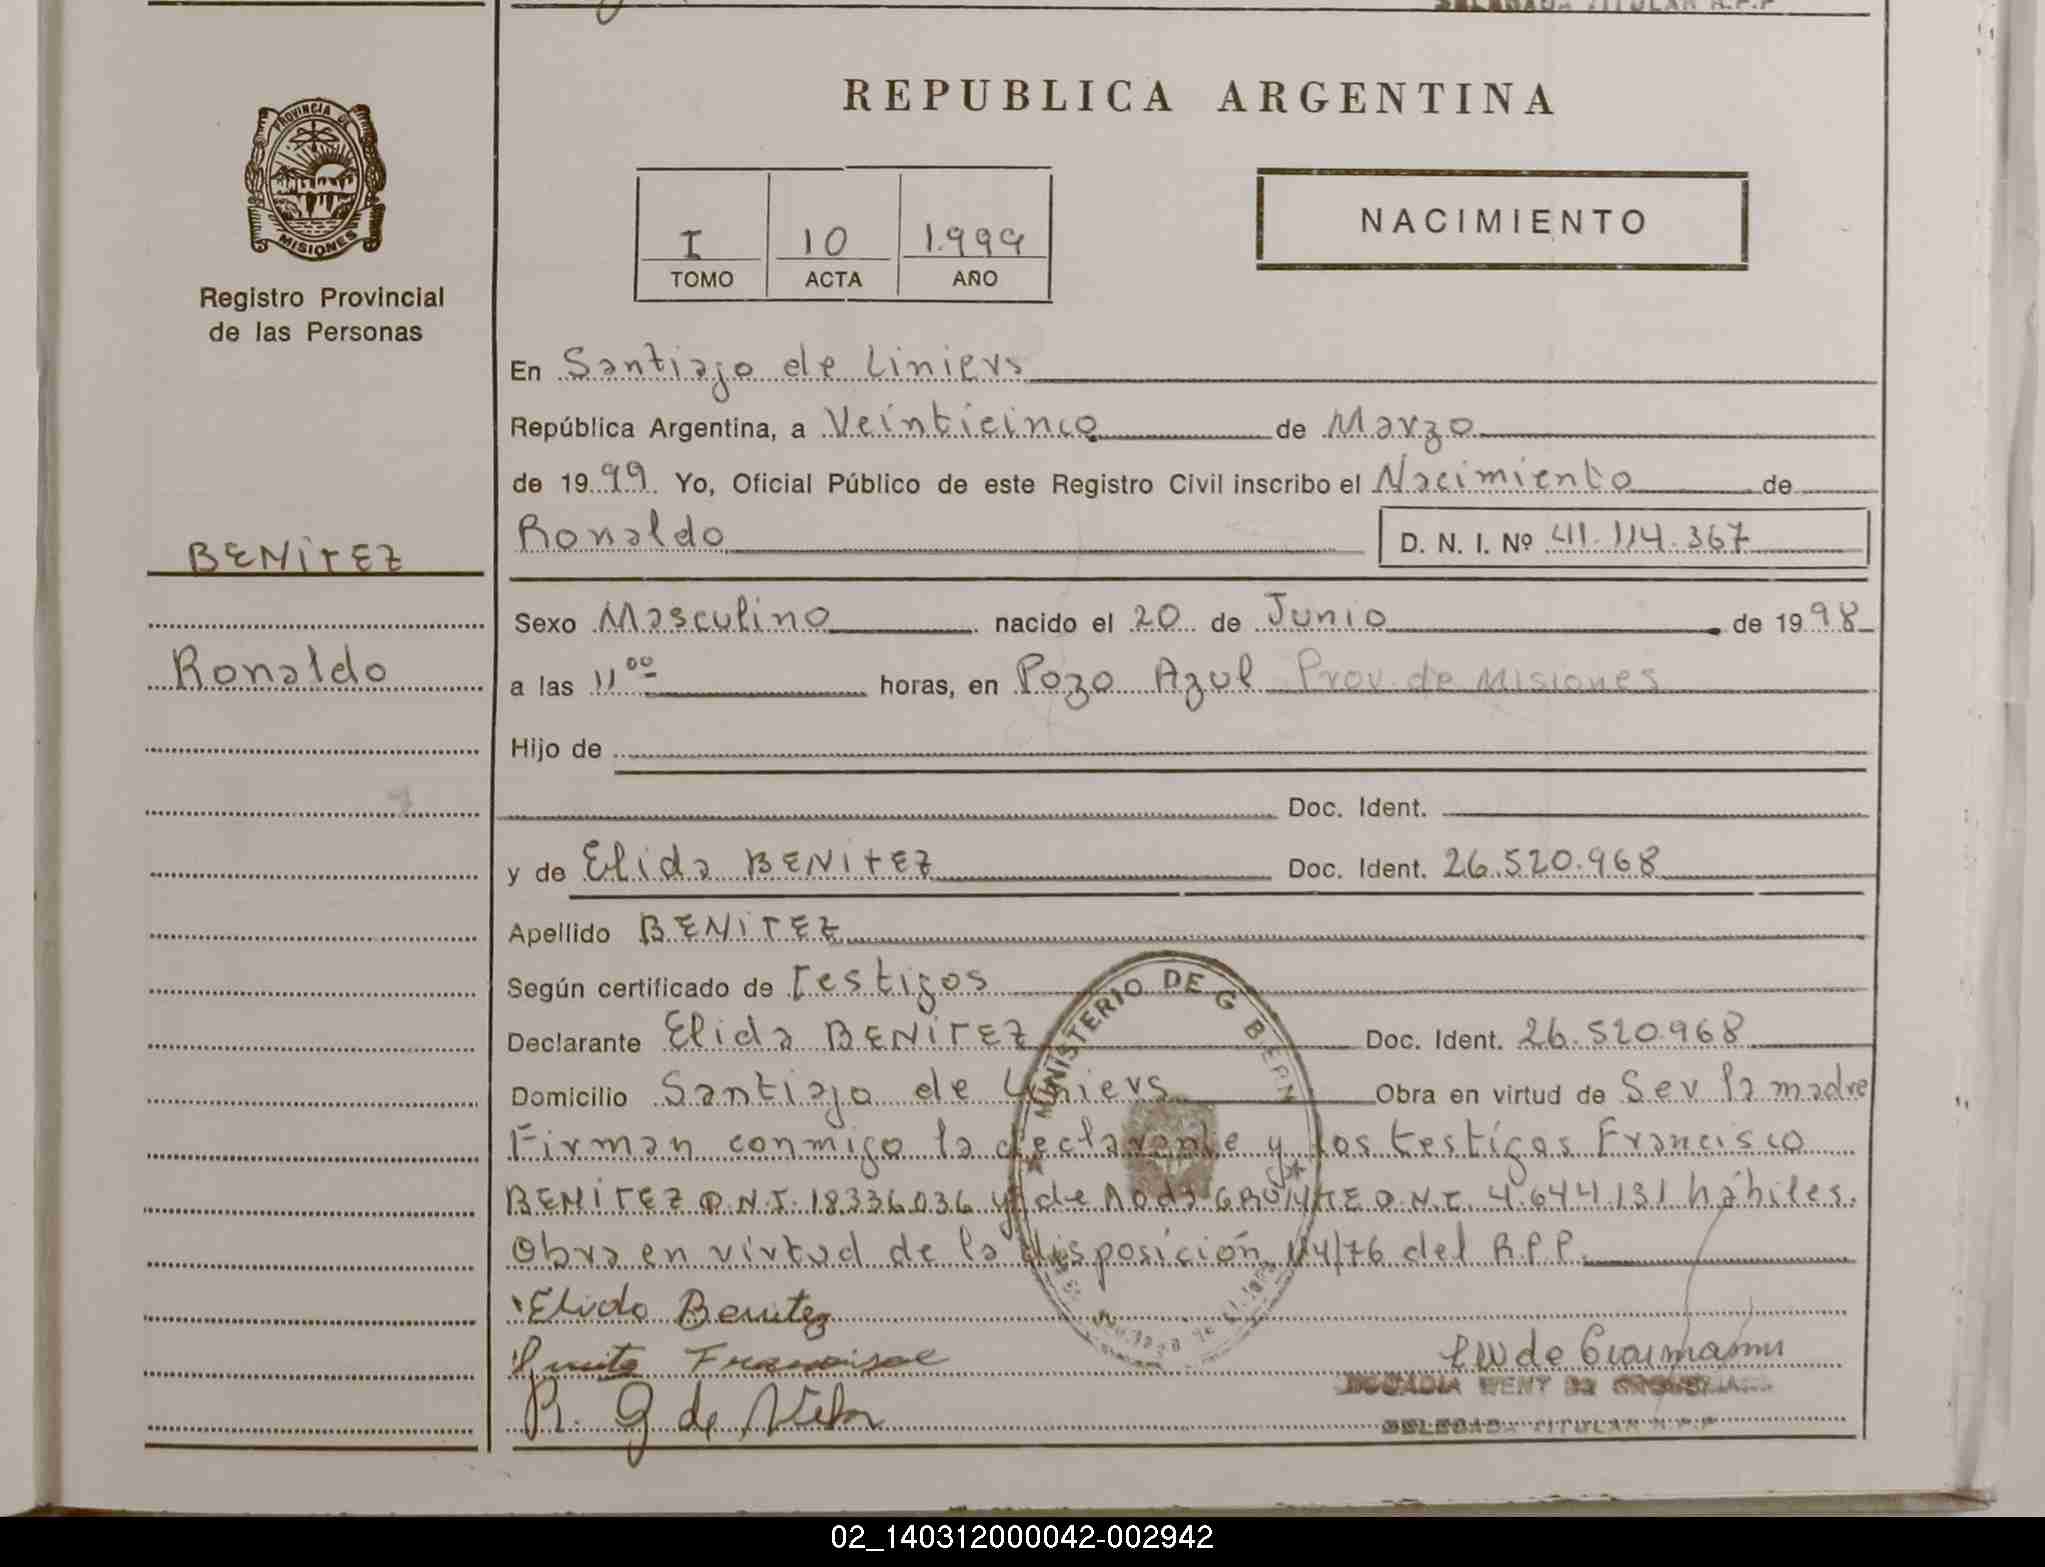 REPUBLICA ARGENTINA
PROVINCIA DE
MISIONES
Registro Provincial
de las Personas
I 10 1.999
TOMO ACTA AÑO
NACIMIENTO
En Santiago de Liniers
República Argentina, a Veinticinco de Marzo
de 1999. Yo, Oficial Público de este Registro Civil inscribo el Nacimiento de
Ronaldo D. N. I. Nº 41.114.367
BENITEZ
Sexo Masculino nacido el 20 de Junio de 1998
Ronaldo
a las 11 00 horas, en Pozo Azul Prov. de Misiones
Hijo de
Doc. Ident.
y de Elida BENITEZ Doc. Ident. 26.520.968
Apellido BENITEZ
Según certificado de Testigos
Declarante Elida BENITEZ Doc. Ident. 26.520.968
Domicilio Santiago de Liniers Obra en virtud de Ser la madre
Firman conmigo la declarante y los testigos Francisco
BENITEZ D.N.I. 18336036 y de D.N.I. 4.644.131 hábiles.
Obra en virtud de la disposición 114/76 del R.P.P.
MINISTERIO DE G BERN
Elida Benitez
R. G de
DELEGADA TITULAR R.P.P
02_140312000042-002942